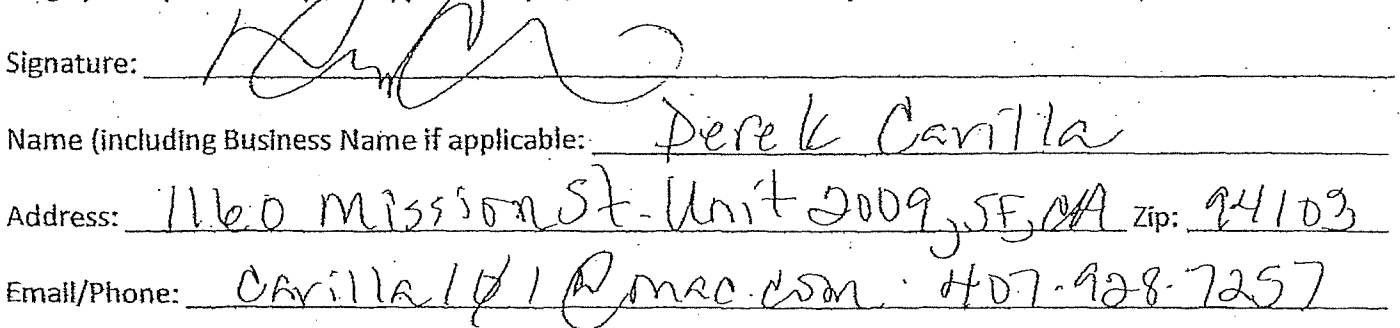 Signature:
Name (including Business Name if applicable: Derek Carilla
Address: 1160 Mission St. Unit 2009, SF, CA Zip: 94103
Email/Phone: Carilla101@mac.com. 407.928.7257